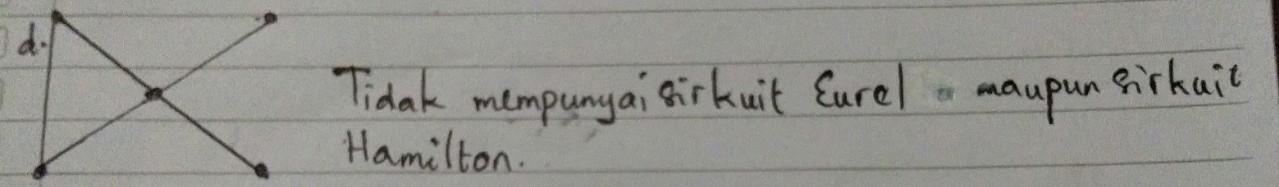 d. Tidak mempunyai sirkuit Eurel maupun sirkuit
Hamilton.